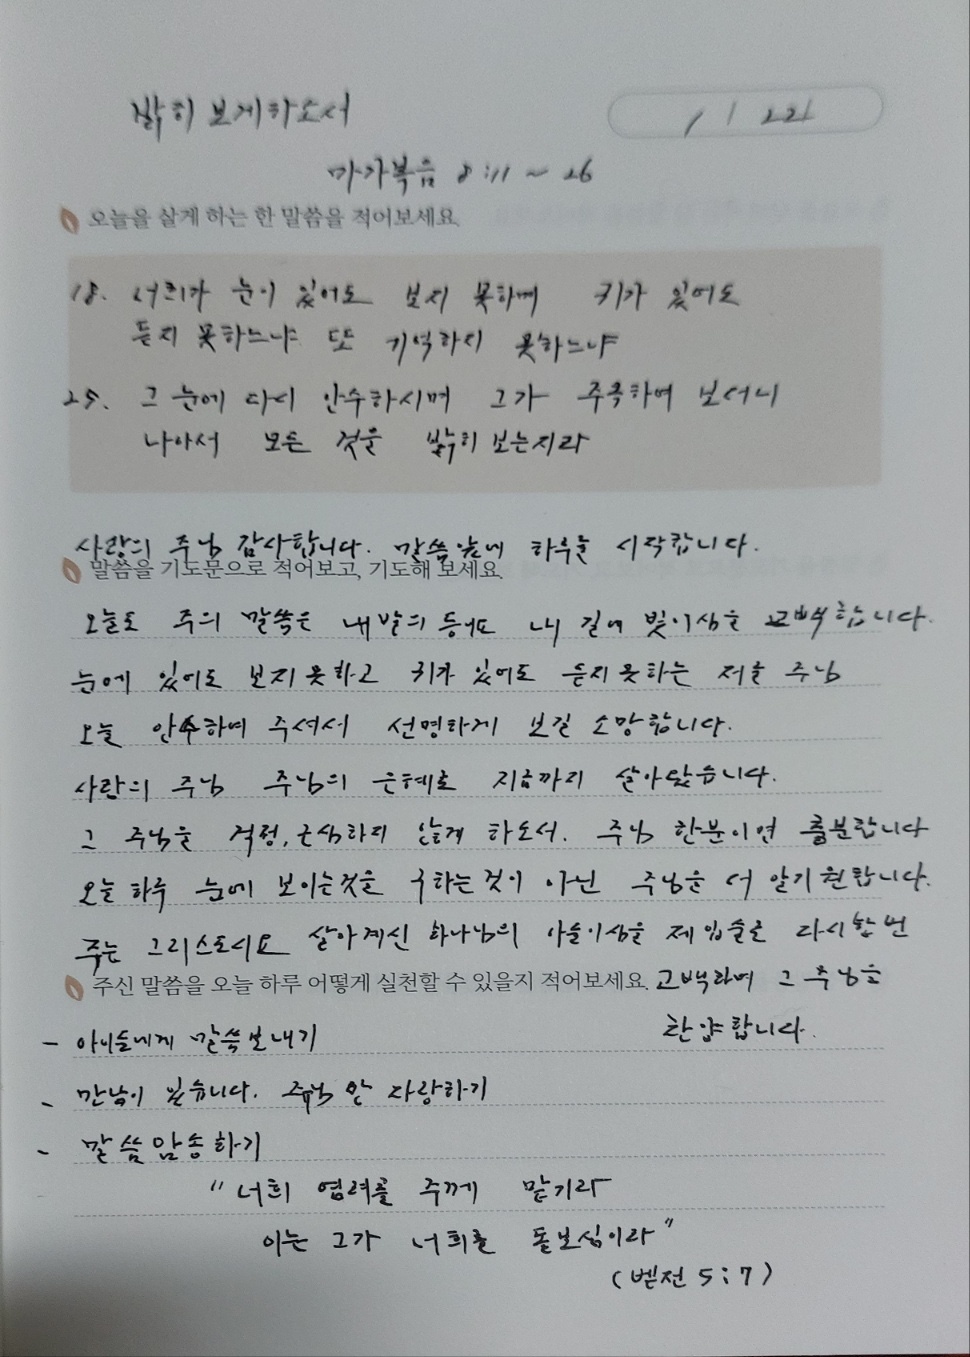 밝히 보게하소서
1 / 22
마가복음 8:11 ~ 26
오늘을 살게 하는 한 말씀을 적어보세요.
18. 너희가 눈이 있어도 보지 못하며 귀가 있어도
듣지 못하느냐 또 기억하지 못하느냐
25. 그 눈에 다시 안수하시매 그가 주목하여 보더니
나아서 모든 것을 밝히 보는지라
사랑의 주님 감사합니다. 말씀앞에 하루를 시작합니다.
말씀을 기도문으로 적어보고, 기도해 보세요.
오늘도 주의 말씀은 내 발의 등이요 내 길에 빛이심을 고백합니다.
눈에 있어도 보지 못하고 귀가 있어도 듣지 못하는 저를 주님
오늘 안수하여 주셔서 선명하게 보길 소망합니다.
사랑의 주님 주님의 은혜로 지금까지 살아왔습니다.
그 주님을 걱정, 근심하지 않게 하소서. 주님 한분이면 충분합니다
오늘 하루 눈에 보이는것을 구하는것이 아닌 주님을 더 알기 원합니다.
주는 그리스도시요 살아계신 하나님의 아들이심을 제 입술로 다시한번
주신 말씀을 오늘 하루 어떻게 실천할 수 있을지 적어보세요. 고백하며 그 주님을
찬양합니다.
- 아이들에게 말씀보내기
- 만남이 있습니다. 주님 만 자랑하기
- 말씀암송하기
"너희 염려를 주께 맡기라
이는 그가 너희를 돌보심이라"
(벧전 5:7)